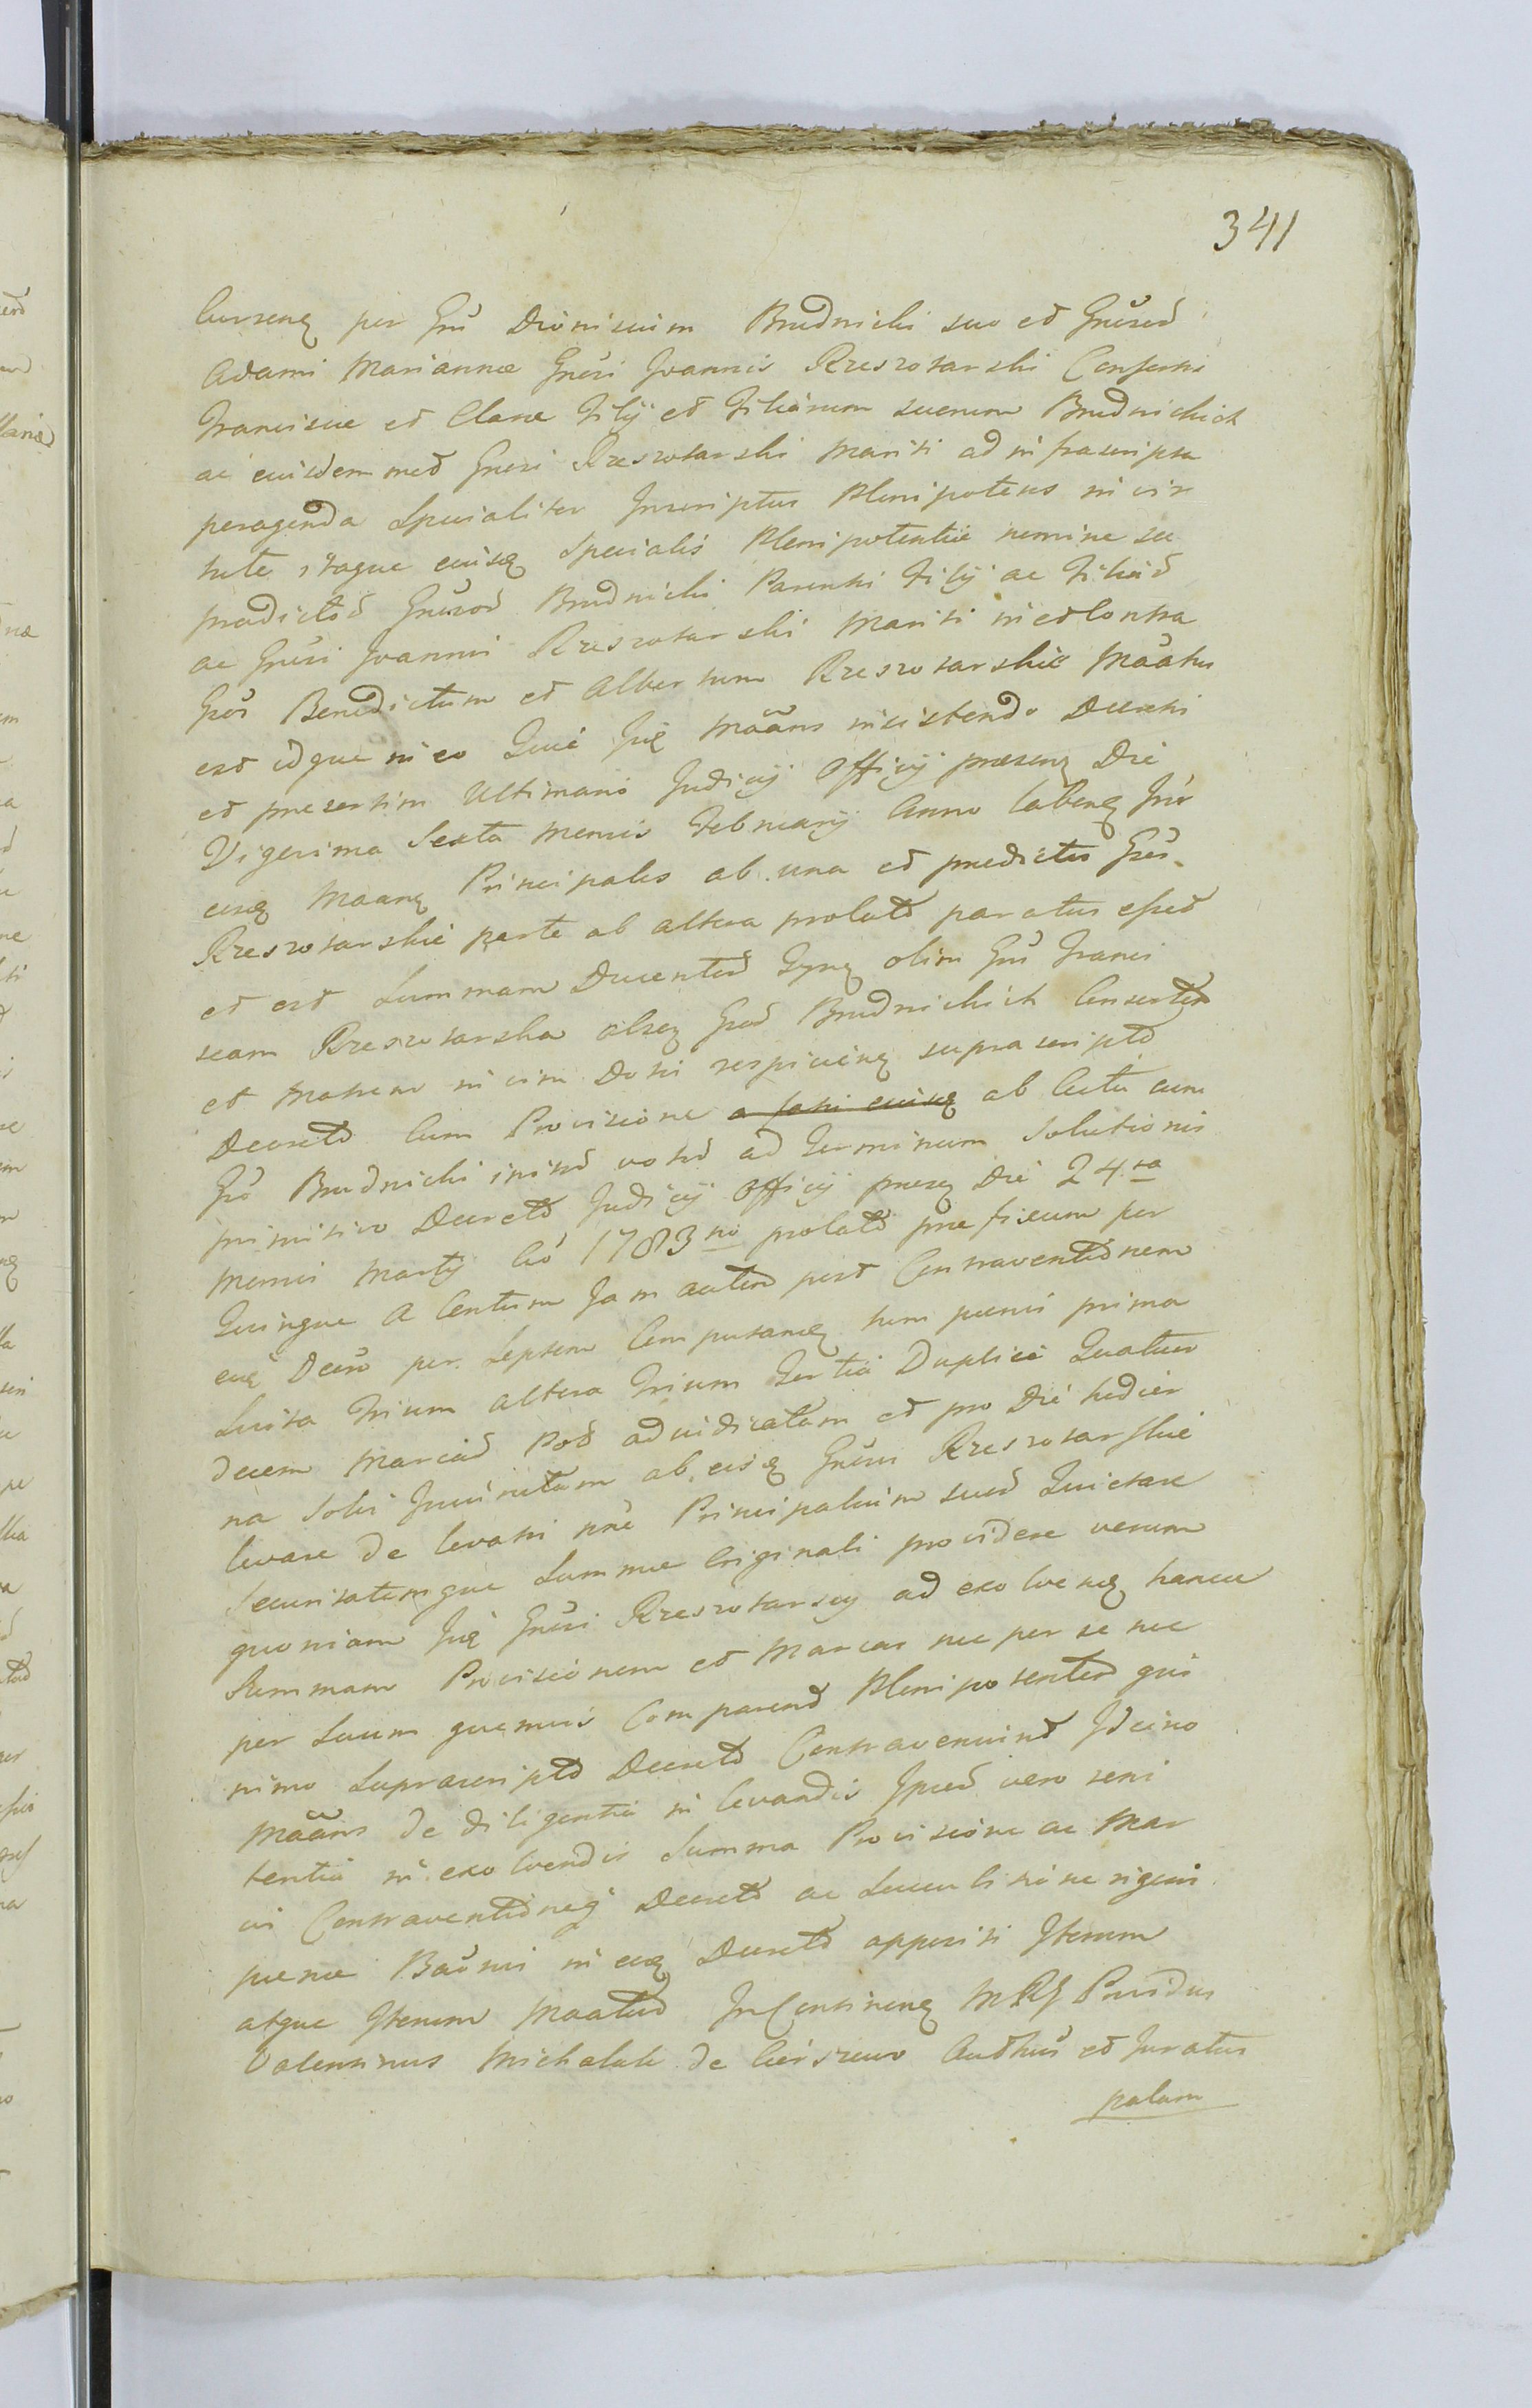 341
per Gnu Dionisium Brudnicki suo et Gnürod
Adami Mariannæ Gnüri Joannis Rzeszotarski Consortis
Franciscæ et Claræ Filij et Filiarum suarum Brudnickich
ac eiusdem med Gneri Rzeszotarski Mariti ad infrascripta
peragenda Specialiter Inscriptus Plenipotens in vir
tute itaque eiusq Specialis Plenipotentiæ nomine su
prædictod Gnürod Brudnicki Parentis Filij ac Filiad
ac Gnüri Joannis Rzeszotarski Mariti in et Contra
Gnos Benedictum et Albertum Rzeszotarskie Māatus
est idque in eo Quia Jpē Māans insistendo Decreti
et presertim Ultimario Judicij Officij præsenq Die
Vigesima Sexta Mensis Februarij Anno labenq Jnr
eiusq Maanq Principales ab una et prædictos Gnos
Rzeszotarskie parte ab altera prolatd paratus esset
et est Summam Ducentud Tynq olim Gnu Franci
scam Rzeszotarska olseq Gnod Brudnickich Consortem
et Matrem in vim Dotis respicienq suprascriptd
Decretd Cum Provisione a ab Actu cum
Gno Brudnicki initud votud ad Terminum Solutionis
primitivo Decretd Judicij Officij præsq Die 24ta
Mensis Martij Ao 1783no prolatd præfixum per
Quinque a Centum Jam autem post Contraventionem
euq Decro per Septem Computanq tum pœnis prima
Luita Trium altera Trium Tertia Duplici Quatuor
decem Marcad Pod adiudicatam et pro Die hodier
na Solvi Iniunctam ab eisq Gnüris Rzeszotarskie
levare de levatis nrē Principalium suod Quietare
Securitatemque Summæ Originali providere verum
quoniam Jpē Gnüri Rzeszotarscy ad exolvenq hancce
Summam Provisionem et Marcas nec per se nec
per Suum quemvis Comparend Plenipotented qui
nimo Suprascriptd Decretd Contravenerunt Idcirco
Māans de diligentia in levandis Jpsud vero reni
tentia in exolvendis Summa Provisione ac Mar
cis Contraventioneq Decretd ac
pœnæ Bānnis in euq Decretd appositi Iterum
atque Iterum Maatud In Continenq MRS Providus
Valentinus Michalak de Authūs et Juratus
palam